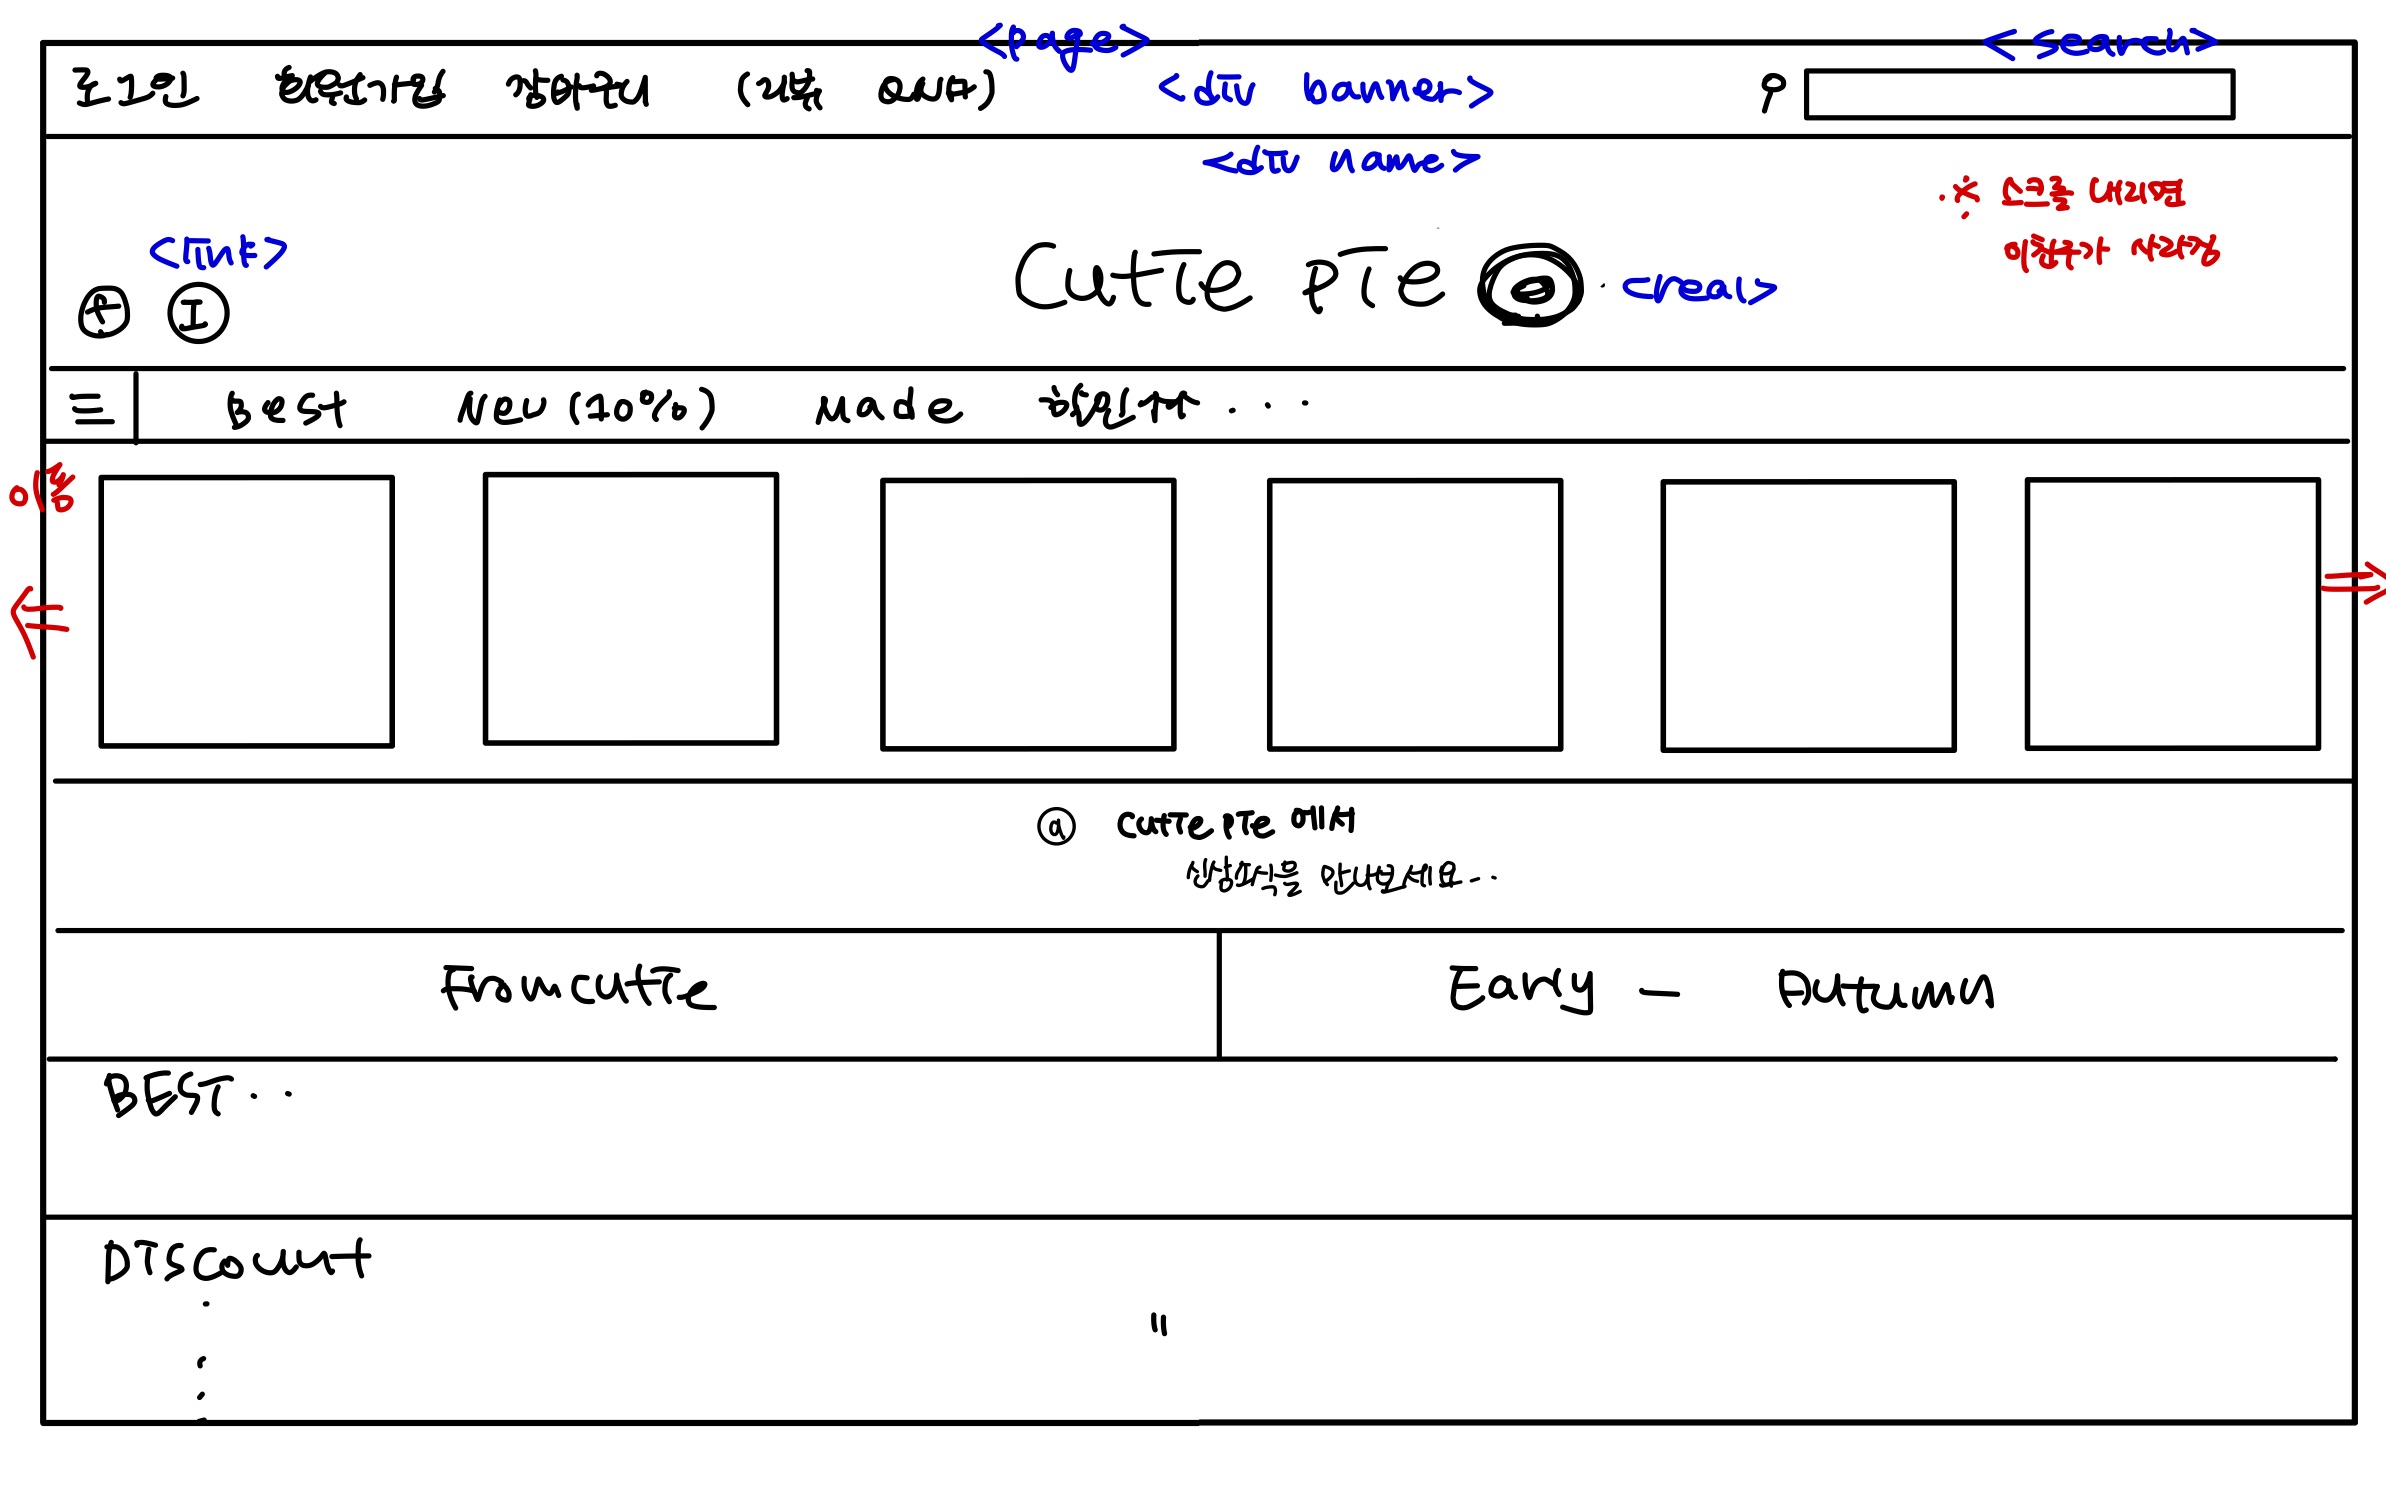 <page>
<search>
로그인 회원가입 장바구니 (기본 요소)
<div banner>
<div name>
※ 스크롤 내리면
이전부가 사라짐
<link>
I
Cutie PIE
<real>
Best New (10%) Made 할인상품 . . .
이동
ⓐ Cutie pie 에서
생활가치를 만나보세요...
From cutie
Early - Autumn
BEST . .
Discount
"